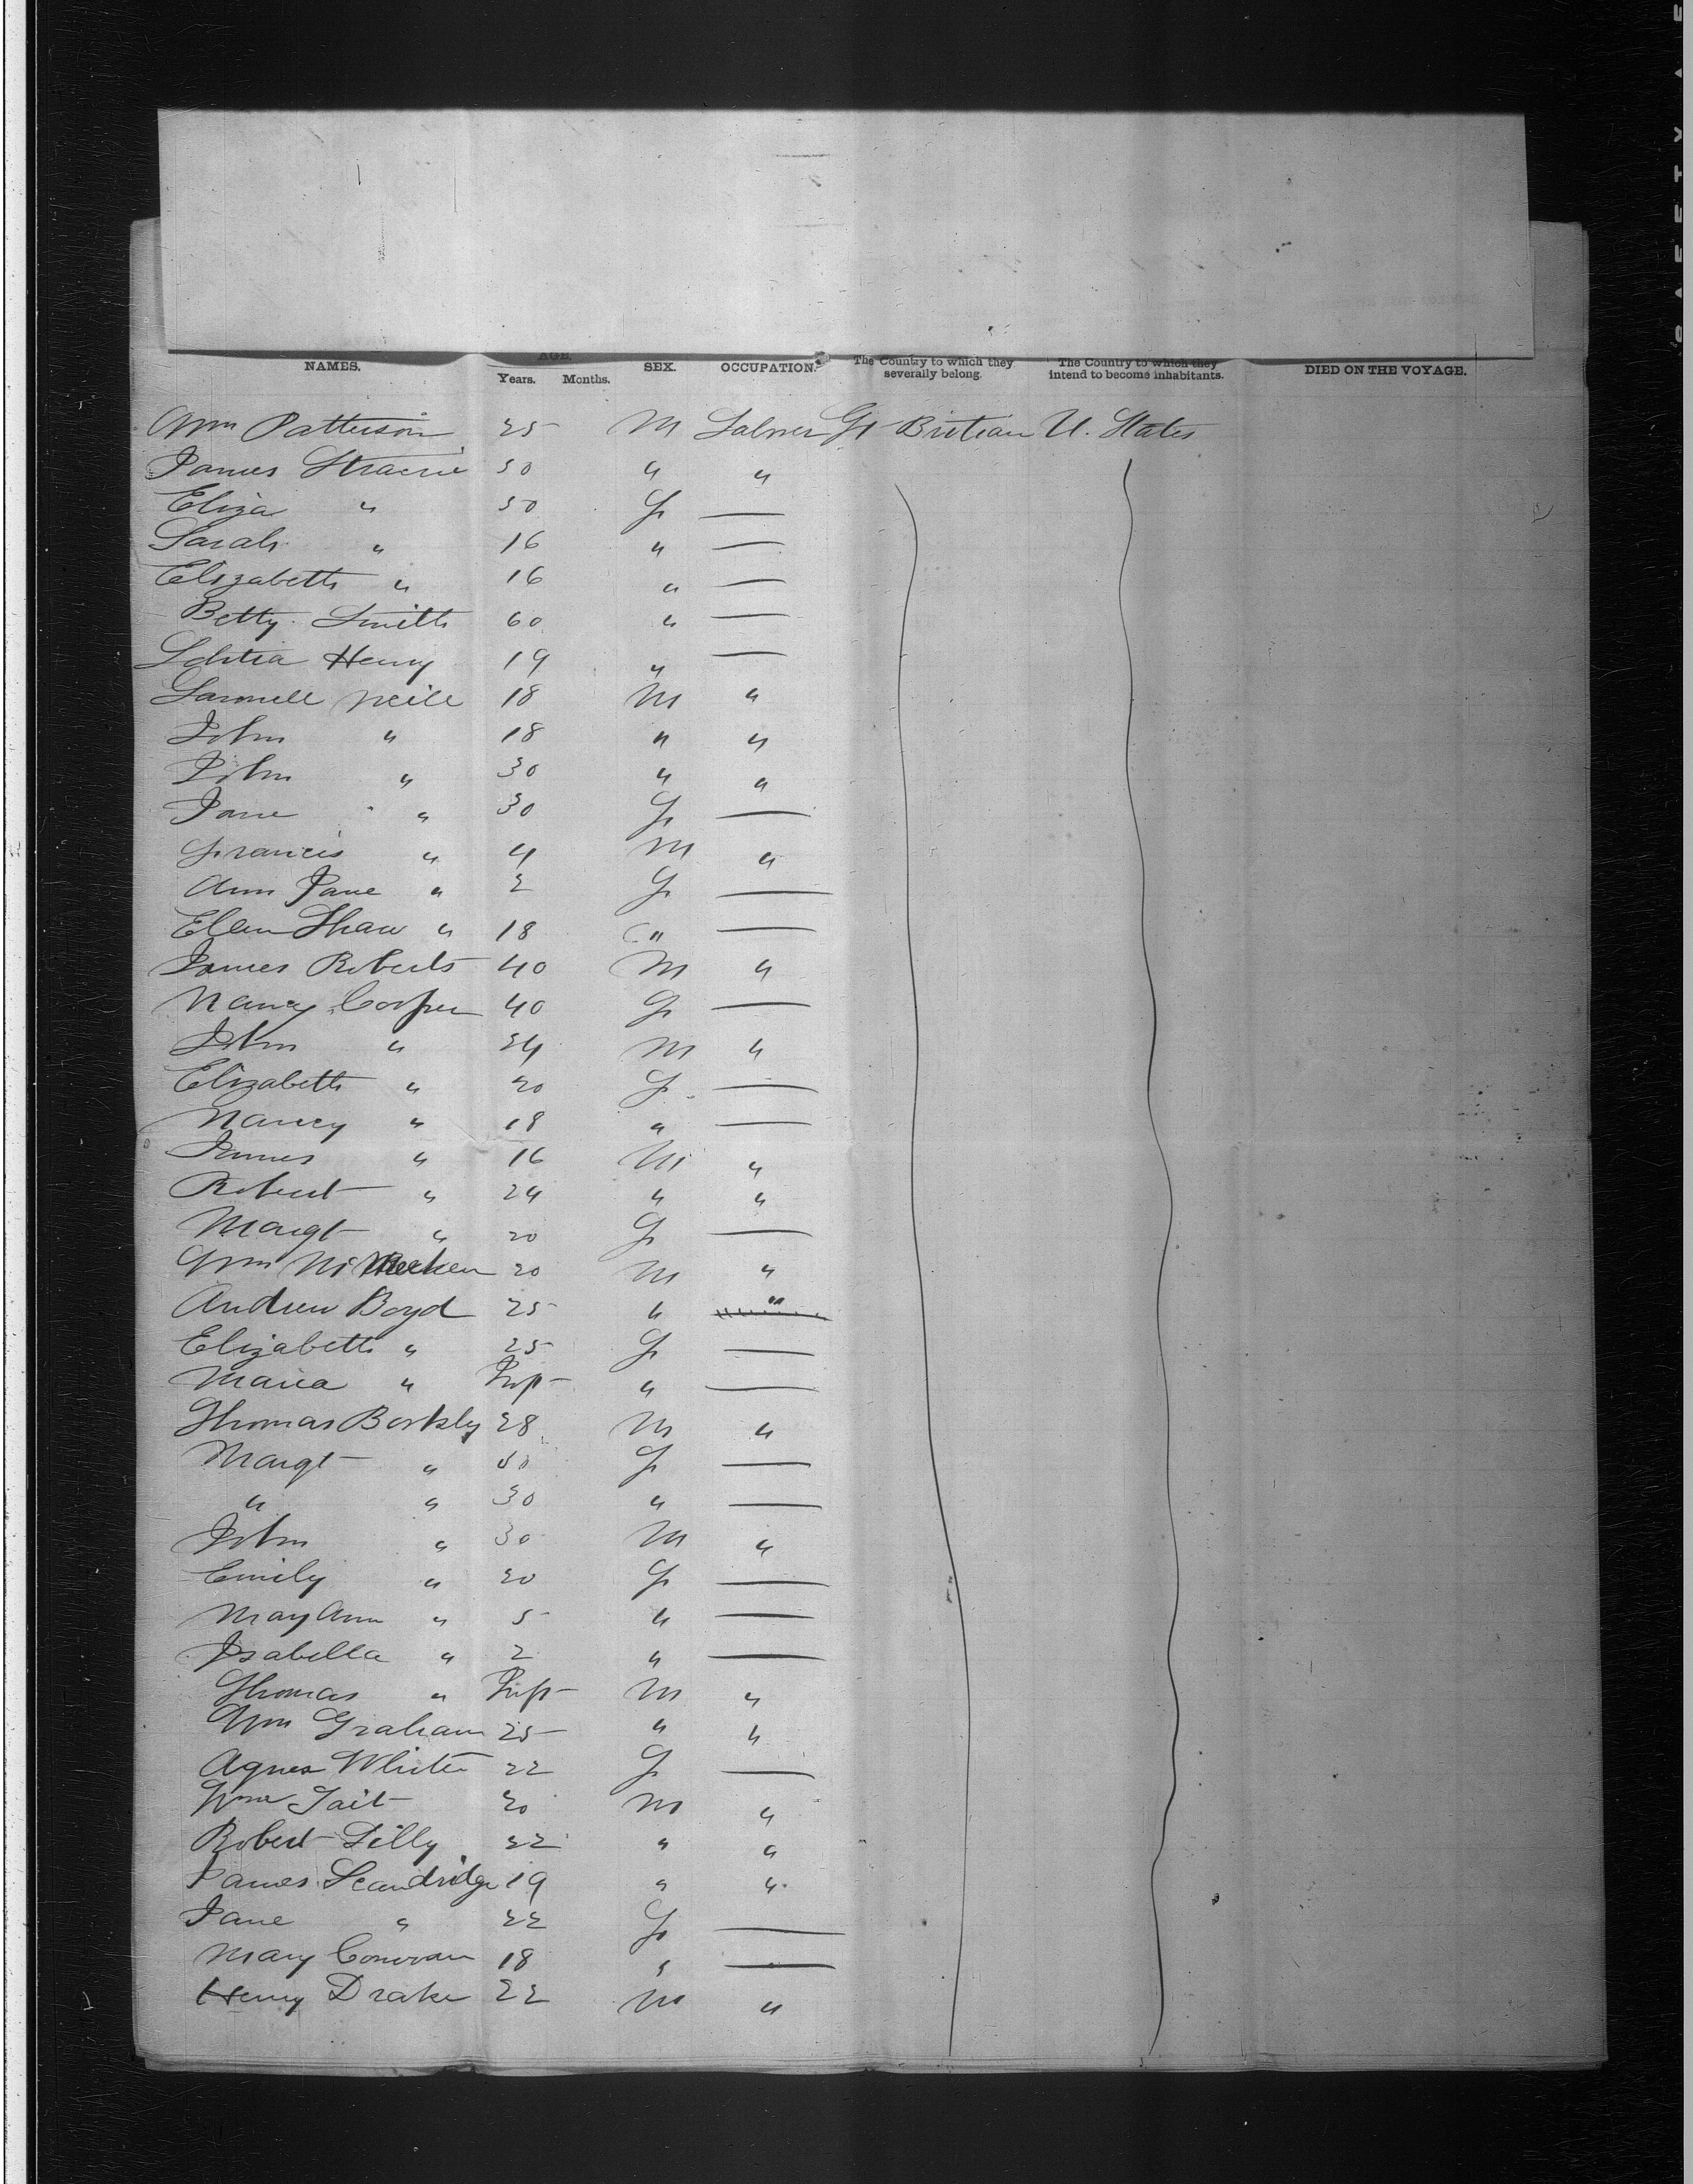 NAMES. AGE. Years. Months. SEX. OCCUPATION. The Country to which they severally belong. The Country to which they intend to become inhabitants. DIED ON THE VOYAGE.
Wm Patterson 25 M Labrer Gt Britian U. States
James 50 " "
Eliza " 50 F —
Sarah " 16 " —
Elizabeth " 16 " —
Betty Smith 60 " —
Letitia Henry 19 " —
Samuell Neill 18 M "
John " 18 " "
John " 30 " "
Jane " 30 F —
Francis " 4 M "
Ann Jane " 2 F —
Ellen Shaw " 18 " —
James Roberts 40 M "
Nancy Cooper 40 F —
John " 24 M "
Elizabeth " 20 F —
Nancy " 18 " —
James " 16 M "
Robert " 24 " "
Margt " 20 F —
Wm 20 M "
Andrew Boyd 25 " "
Elizabeth " 25 F —
Maria " Inft " —
Thomas Berkly 28 M "
Margt " F —
" " 30 " —
John " 30 M "
Emily " 20 F —
Mary Ann " 5 " —
Isabella " 2 " —
Thomas " Inft M "
Wm Graham 25 " "
Agnes White 22 F —
Wm Tait 20 M "
Robert Lilly 22 " "
James Scandridge 19 " "
Jane " 22 F —
Mary Conovan 18 " —
Henry Drake 22 M "
SAFETY